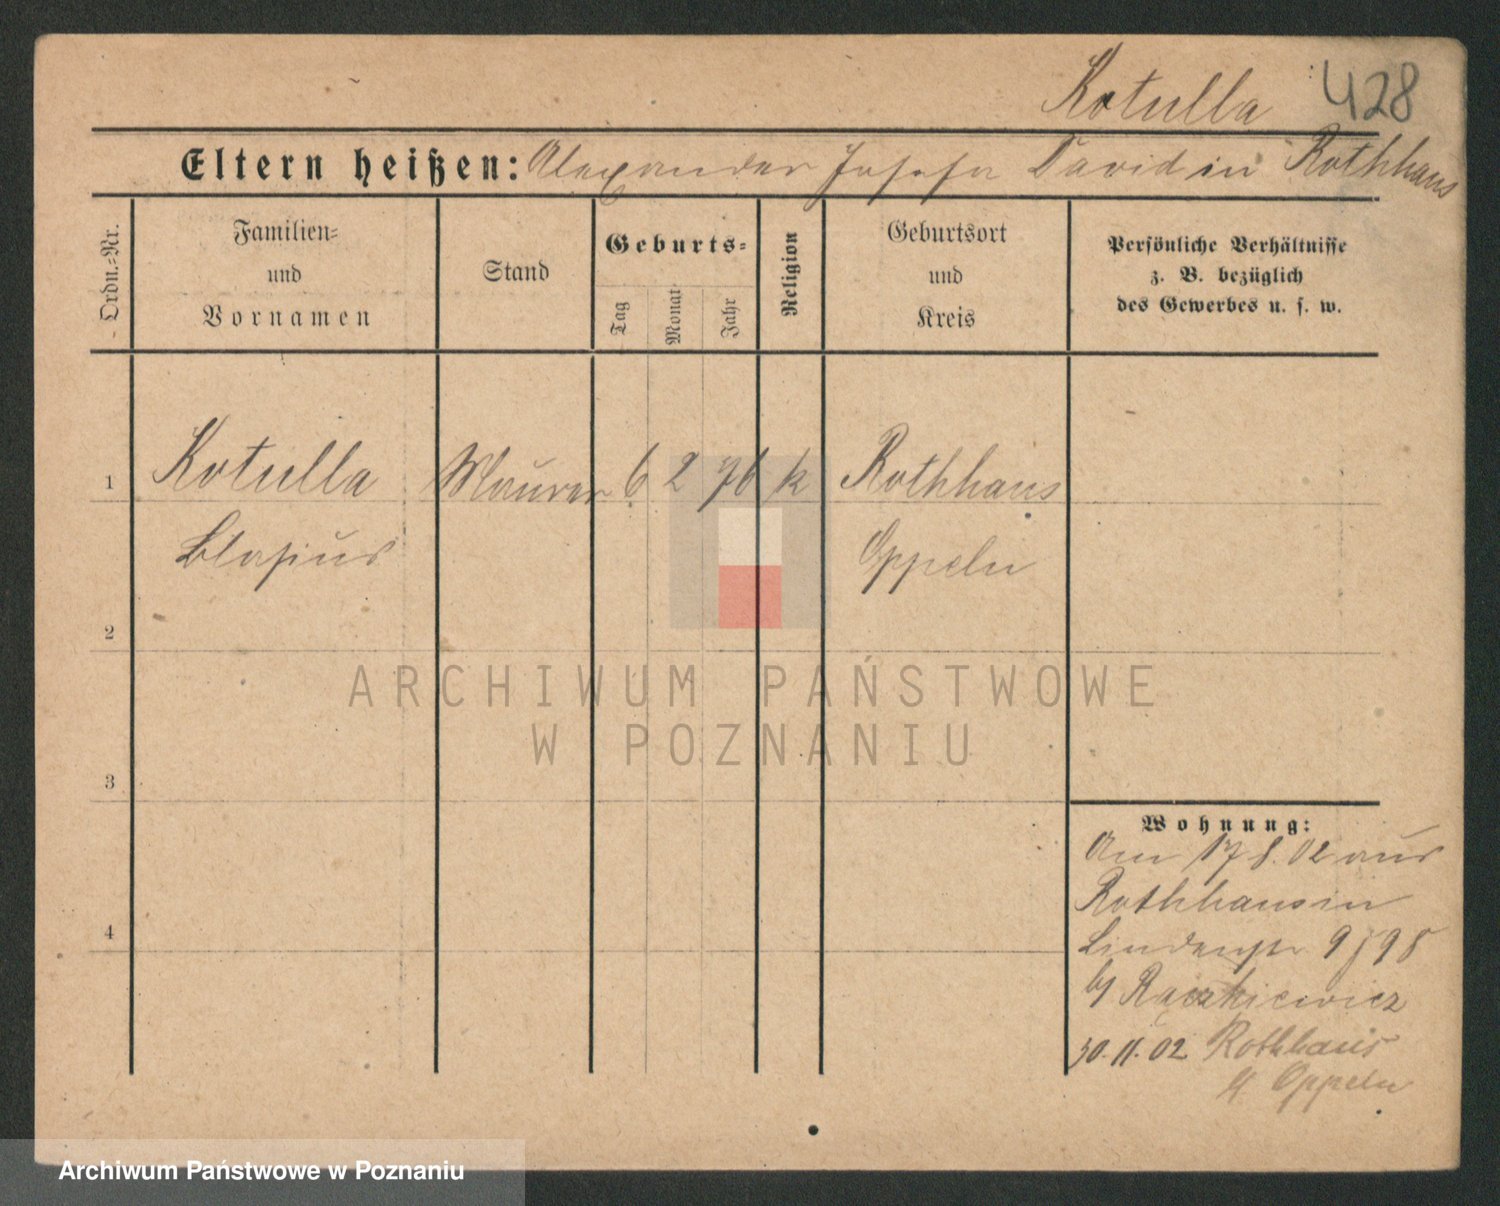 Kotulla 428
Eltern heißen: Alexander Josefa David in Rothhaus
Ordn.-Nr.
Familien-
und
Vornamen
Stand
Geburts-
Tag
Monat
Jahr
Religion
Geburtsort
und
Kreis
Persönliche Verhältnisse
z. B. bezüglich
des Gewerbes u. s. w.
1 Kotulla Maurer 6 2 76 k Rothhaus
Blasius Oppeln
2
3
4
Wohnung:
Am 17 8. 02 aus
Rothhaus in
Lindenstr 9
b/ Raczkiewicz
30. 11. 02 Rothhaus
Oppeln
ARCHIWUM PAŃSTWOWE
W POZNANIU
Archiwum Państwowe w Poznaniu